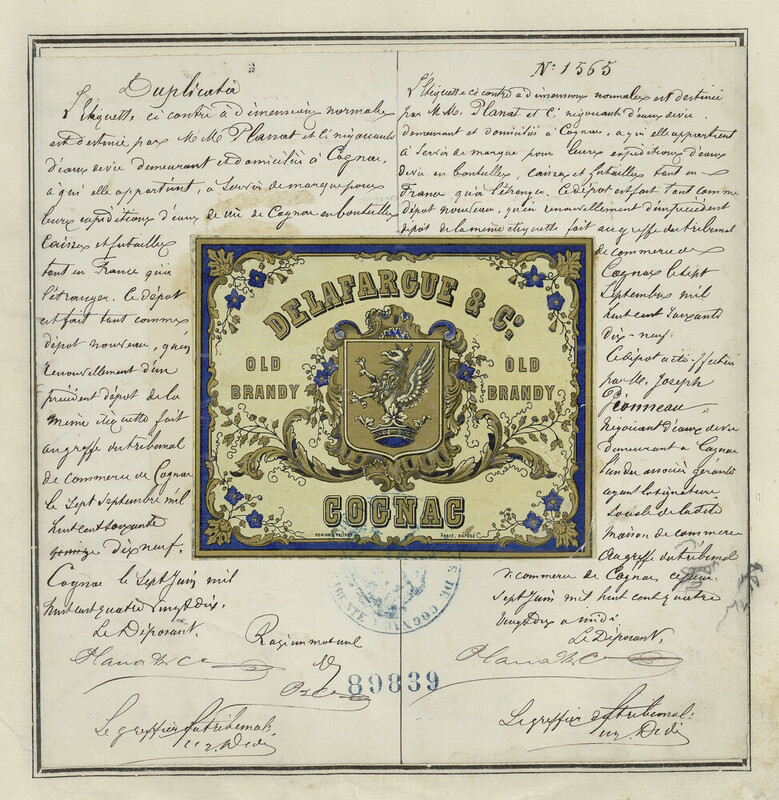 Duplicata
L'étiquette ci contre à dimensions normales
est destinée par M.M. Planat et Cie négociants
d'eaux de vie demeurant et domiciliés à Cognac,
à qui elle appartient, à servir de marque pour
leurs expéditions d'eaux de vie de Cognac en bouteilles
caisses et futailles
tant en France qu'à
l'étranger. Ce dépôt
est fait tant comme
dépôt nouveau, qu'en
renouvellement d'un
précédent dépôt de la
même étiquette fait
au greffe du tribunal
de commerce de Cognac
le sept septembre mil
huit cent soixante
dix neuf.
Cognac le sept Juin mil
huit cent quatre vingt dix.
Le Déposant,
Planat & Cie
Le greffier du tribunal:
No 1565
L'étiquette ci contre à dimensions normales est destinée
par M.M. Planat et Cie négociants d'eaux de vie
demeurant et domiciliés à Cognac, à qui elle appartient
à servir de marque pour leurs expéditions d'eaux
de vie en bouteilles, caisses et futailles tant en
France qu'à l'étranger. Ce dépôt est fait tant comme
dépôt nouveau, qu'en renouvellement d'un précédent
dépôt de la même étiquette fait au greffe du tribunal
de commerce de
Cognac le sept
Septembre mil
huit cent soixante
dix-neuf.
Ce dépôt a été effectué
par M. Joseph
négociant d'eaux de vie
demeurant à Cognac
l'un des associés gérants
ayant la signature
sociale de la dite
maison de commerce
Au greffe du tribunal
de commerce de Cognac, ce jour
sept Juin mil huit cent quatre
vingt dix à midi
Le Déposant,
Planat & Cie
Le greffier du tribunal:
DELAFARGUE & Co
OLD
BRANDY
OLD
BRANDY
COGNAC
89839